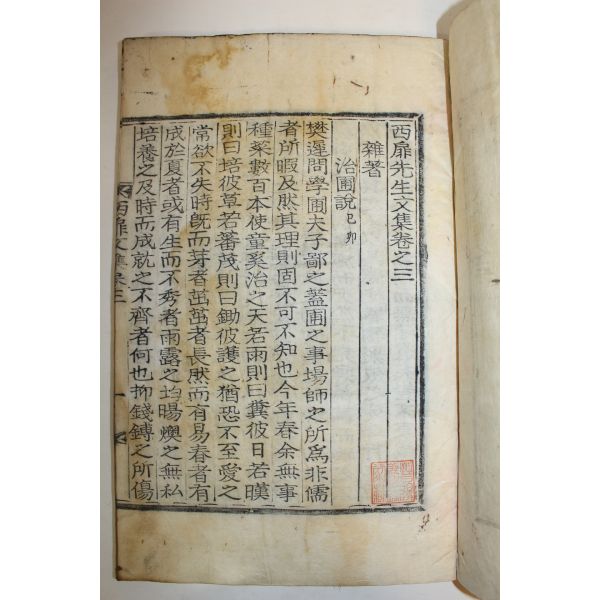 西扉先生文集卷之三
雜著
治圃說 己卯
樊遲問學圃夫子鄙之蓋圃之事場師之所爲非儒
者所暇及然其理則固不可不知也今年春余無事
種菜數百本使童奚治之天若雨則曰糞彼日若暵
則曰培彼草若蕃茂則曰鋤彼護之猶恐不至愛之
常欲不失時旣而芽者茁茁者長然而有易春者有
成於夏者或有生而不秀者雨露之均暘燠之無私
培養之及時而成就之不齊者何也抑錢鎛之所傷
西扉文集卷三
一